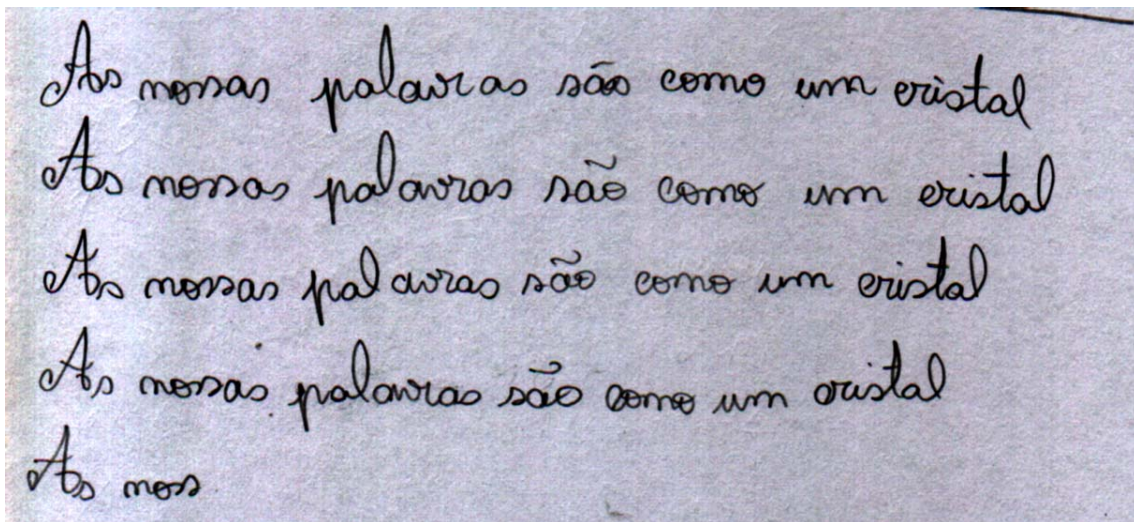 As nossas palavras são como um cristal
As nossas palavras são como um cristal
As nossas palavras são como um cristal
As nossas palavras são como um cristal
As nos